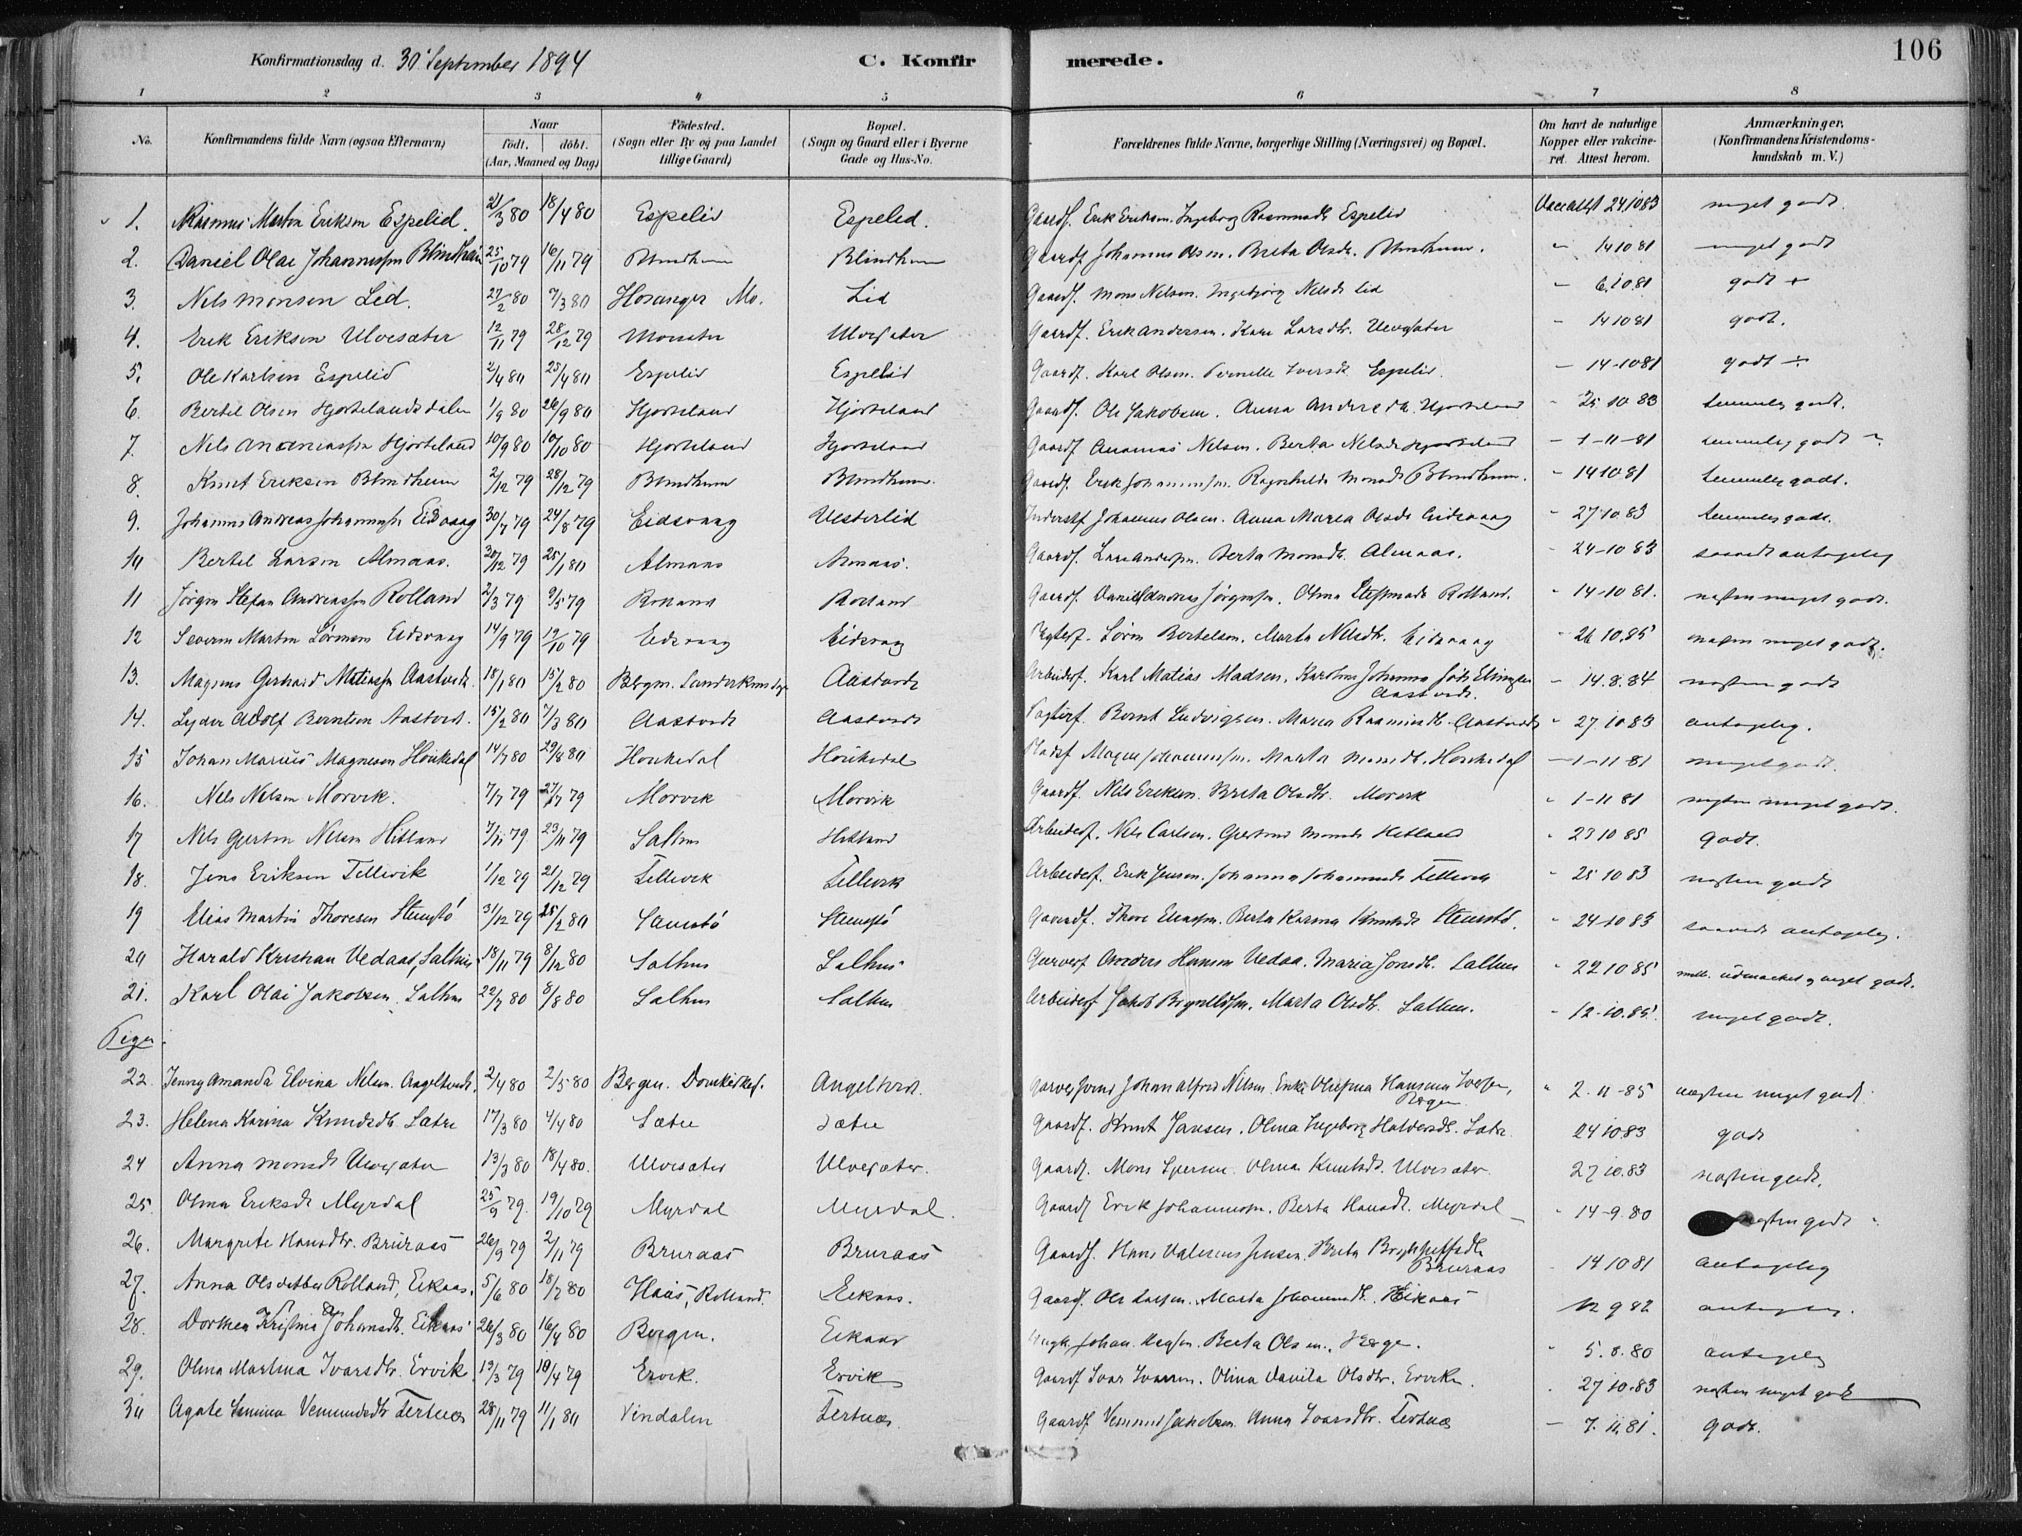 106
Konfirmationsdag d. 30 September 1894 C. Konfir merede.
1 2 3 4 5 6 7 8
No. Konfirmandens fulde Navn (ogsaa Efternavn) Naar født. døbt. (Aar, Maaned og Dag) Fødested. (Sogn eller By og paa Landet tillige Gaard) Bopæl. (Sogn og Gaard eller i Byerne Gade og Hus-No. Forældrenes fulde Navne, borgerlige Stilling (Næringsvei) og Bopæl. Om havt de naturlige Kopper eller vakcineret. Attest herom. Anmærkninger. (Konfirmandens Kristendomskundskab m. V.)
1. Rasmus Martin Eriksen Espelid. 21/3 80 18/4 80 Espelid Espelid. Gaardf. Erik Eriksen. Ingeborg Rasmusdt. Espelid 24 10 83 meget godt.
2. Daniel Olai Johannessen Blindheim 25/10 79 16/11 79 Blindheim Blindheim Gaardf. Johannes Olsen. Brita Olsdt. Blindheim. " 14 10 81 meget godt
3. Nels Monsen Lid. 27/2 80 7/3 80 Hosanger Mo. Lid Gaardf. Mons Nelsen. Ingebjørg Nelsdt Lid – 6.10 81 godt +
4. Erik Eriksen Ulvesæter 12/11 79 28/12 79 Ulvesæter Gaardf. Erik Andersen. Kari Larsdtr. Ulvesæter – 14 10 81 godt.
5. Ole Karlsen Espelid 2/4 80 25/4 80 Espelid Espelid Gaardf. Karl Olsen. Pernille Iversdt. Espelid. – 14-10 81 godt ÷
6. Bertel Olsen Hjortelandsdalen 1/9 80 26/9 80 Hjorteland Hjorteland Gaardf. Ole Jakobsen. Anna Andersdt. Hjorteland " 25 10 83 temmelig godt.
7. Nels Ananiassen Hjorteland 10/9 80 10/10 80 Hjorteland Hjorteland Gaardf Ananias Nelsen. Berta Nelsdt Hjorteland – 1-11-81 temmelig godt
8. Knut Eriksen Blindheim 2/12 79 28/12 79 Blindheim Blindheim. Gaardf. Erik Johannessen. Ragnhilda Monsdt Blindheim. " 14 10 81 temmelig godt.
9. Johannes Andreas Johannessen Eidsvaag 30/7 79 24/8 79 Eidsvaag Vesterlid Inderstf Johannes Olsen. Anna Maria Olsdt Eidsvaag – 27 10.83 temmelig godt.
10 Bertel Larsen Almaas. 30/12 79 25/1 80 Almaas Almaas. Gaardf. Lars Andersen. Berta Monsdt. Almaas. " 24-10 83 saavidt antagelig
11 Jørgen Stefan Andreassen Rolland 2/3 79 9/3 79 Rolland Rolland Gaardf. Daniel Andreas Jørgensen. Olina Rolland. " 14-10 81. næsten meget godt.
12 Severin Martin Sørensen Eidsvaag 14/9 79 19/10 79 Eidsvaag Eidsvaag Søren Bertelsen. Marta Nelsdtr. Eidsvaag " 26 10.85 næsten meget godt.
13. Magnus Gerhard Matiassen Aastvedt. 18/1 80 15/2 80 Bergen. Aastvedt Arbeiderf. Karl Matias Madsen, Johanna Aastvedt. – 14.8.84 næsten godt
14. Lyder Adolf Berntsen Aastvedt. 15/2 80 7/3 80 Aastvedt Aastvedt Bernt Ludvigsen. Maria Rasmusdt. Aastvedt " 27 10.83 antagelig.
15 Johan Marius Magnesen Haukedal 14/7 80 29/8 80 Haukedal Haukedal Magne Johannessen. Marta Monsdt. Haukedal – 1-11 81 meget godt.
16. Nels Nelsen Morvik. 7/7 79 27/7 79 Morvik Morvik Gaardf. Nils Eriksen. Brita Olsdtr. Morvik " 1-11 81 næsten meget godt.
17 Nels Gjertin Nelsen Hitland 7/11 79 23/11 79 Salhus Hitland Arbeiderf. Nels Carlsen. Gjertrud Monsdt Hetland " 23 10 85 godt.
18. Jens Eriksen Tellevik 1/12 79 21/12 79 Tellevik Tellevik Arbeiderf. Erik Jensen. Johanna Johannesdt Tellevik " 25 10 83 næsten godt
19 Elias Martin Thoresen Stenstø 31/12 79 25/2 80 Stenstø Gaardf. Thore Eliassen. Berta Karina Knutsdt Stenstø. " 24-10 83 saavidt antagelig.
20 Harald Kristian Vedaas, Salhus 18/11 79 8/12 80 Salhus Salhus Garverf Anders Hansen Vedaa. Maria Jonsdt. Salhus " 22 10 85 mell. udmærket og meget godt.
21. Karl Olai Jakobsen. Salhus 22/7 80 8/8 80 Salhus Salhus Arbeiderf Jakob Brynildsen. Marta Olsdtr. Salhus. " 12-10.85. meget godt.
Piger.
22. Jenny Amanda Elvina Nelsen. Angeltvedt. 2/4 80 2/5 80 Bergen. Domkirken. Angeltvedt. Garversvend Johan Alfred Nilsen. Enke Hansine Iversen, Bergen " 2.11-85 næsten meget godt.
23. Helena Karina Knudsdtr. Sætre 17/3 80 4/4 80 Sætre Sætre Gaardf. Knut Jansen. Olina Ingeborg Halvorsdt. Sætre 24 10.83 godt
24 Anna Monsdt Ulvesæter 13/3 80 18/4 80. Ulvesæter Ulvesæter. Gaardf. Mons Olina Knutsdt. Ulvesæter 27 10.83 næsten godt.
25. Olina Eriksdt Myrdal 25/9 79. 19/10 79 Myrdal Myrdal. Gaardf Erik Johannessen. Berta Hansdt. Myrdal – 14-9.80 næsten godt
26. Margrete Hansdtr. Bruraas 26/9 79 2/11 79 Bruraas Bruraas Gaardf. Hans Jensen. Brita Bruraas " 14 10 81 antagelig
27. Anna Olsdatter Rolland, Eikaas. 5/6 80 18/7 80 Haas, Rolland. Eikaas. Gaardf. Ole Larsen. Marta Johannesdt. Eikaas 12 9 82 antagelig.
28. Dorthea Kristine Johansdt. Eikaas 26/3 80 16/4 80 Bergen. Eikaas Johan Berta Olsen. " 5.8.80 antagelig
29. Olina Martina Ivarsdtr. Ervik. 19/3 79 10/4 79 Ervik. Ervik Gaardf Ivar Ivarsen. Olina Davida Olsdtr. Ervik. . 27 10.83 næsten meget godt
30 Agate Vemundsdtr Tertnæs 28/11 79 11/1 80 Vindalen Tertnæs. Gaardf Vemund Jakobsen Anna Ivarsdtr. Tertnæs – 7.11.81. godt.